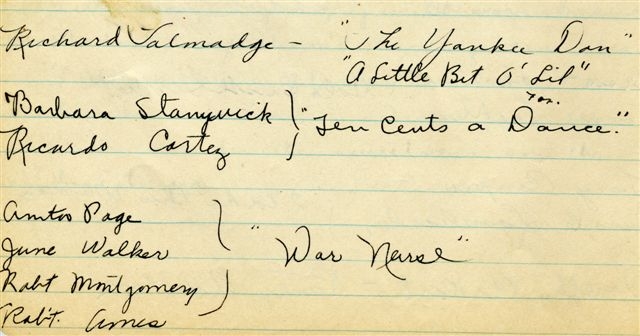 Richard Talmadge - "The Yankee Don"
"A Little Bit O' Lil"
Barbara Stanywick
Ricardo Cortez
Fox.
"Ten Cents a Dance."
Anita Page
June Walker
Rob't Montgomery
Rob't. Ames
"War Nurse"